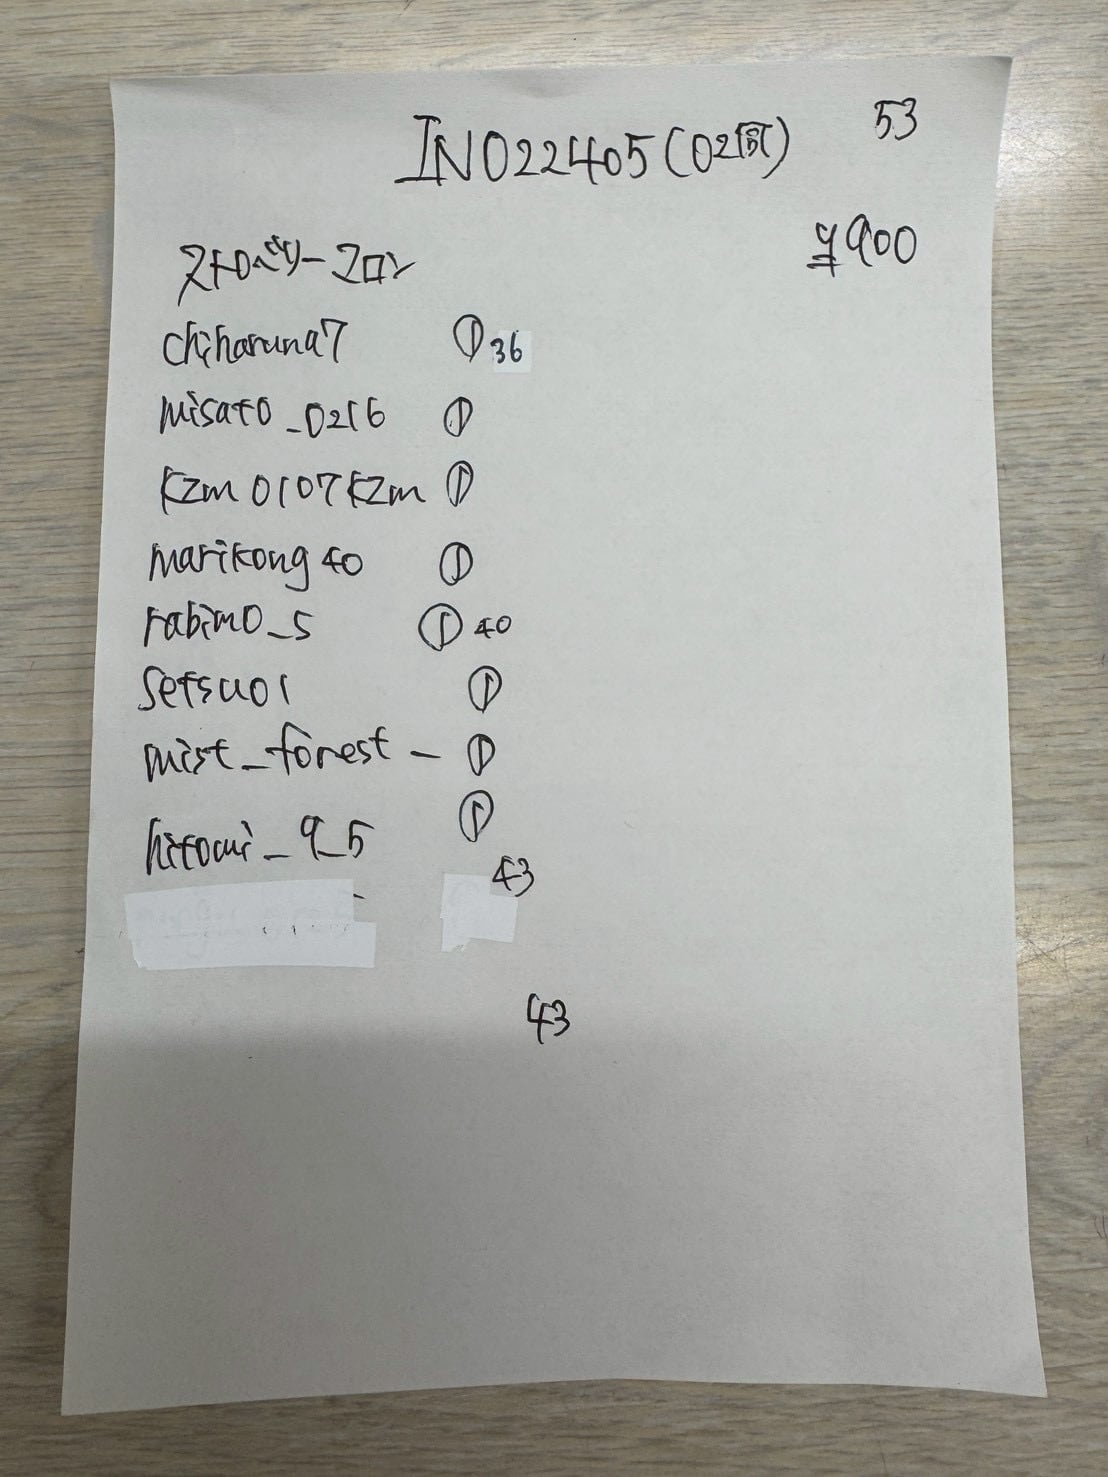 53
INO22405(02蔵)
¥900
ストロベリーフロン
chiharuna7 ① 36
misato_0216 ①
kzm0107kzm ①
marikong40 ①
rabimo_5 ① 40
setsuo1 ①
mist_forest_ ①
hitomi_9_5 ①
43
43